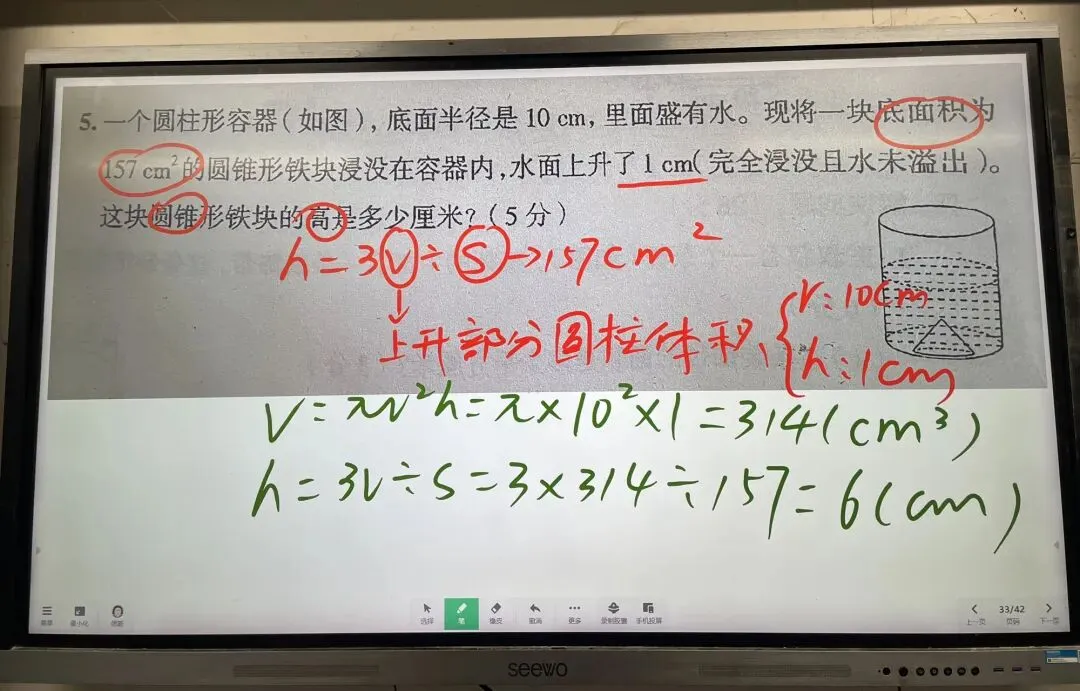 5. 一个圆柱形容器(如图),底面半径是 10 cm,里面盛有水。现将一块底面积为
157 cm²的圆锥形铁块浸没在容器内,水面上升了 1 cm(完全浸没且水未溢出)。
这块圆锥形铁块的高是多少厘米?(5 分)
h=3V÷S→157cm²
上升部分圆柱体积、
r:10cm
h:1cm
V=πr²h=π×10²×1=314(cm³)
h=3V÷S=3×314÷157=6(cm)
菜单 最小化 选择 笔 橡皮 撤消 更多 手机投屏 上一页 33/42 页码 下一页
seewo